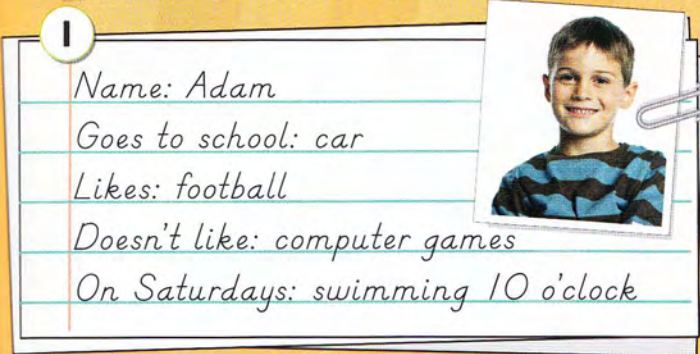 1
Name: Adam
Goes to school: car
Likes: football
Doesn't like: computer games
On Saturdays: swimming 10 o'clock